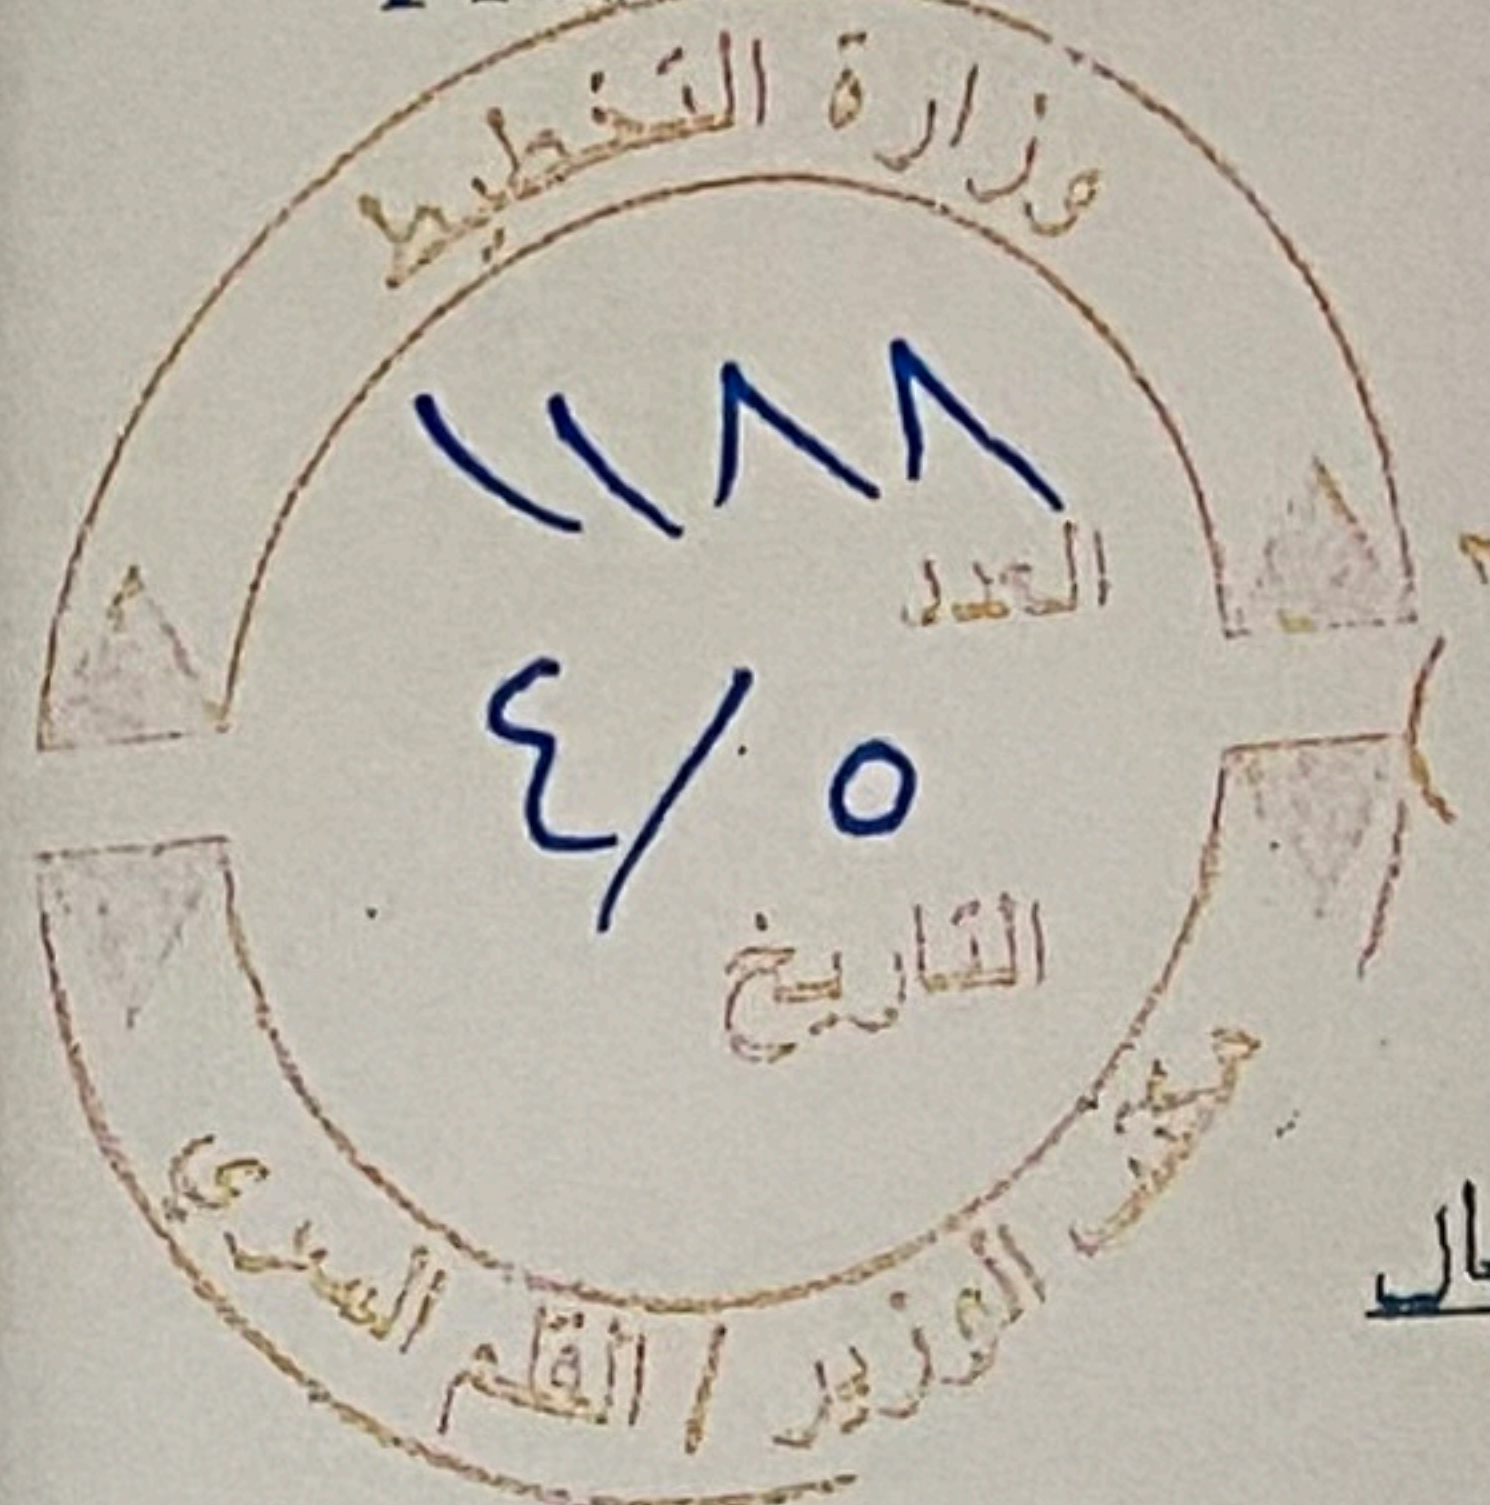 وزارة التخطيط
١١٨٨
العدد
٤/٥
التاريخ
مكتب الوزير / القلم السري